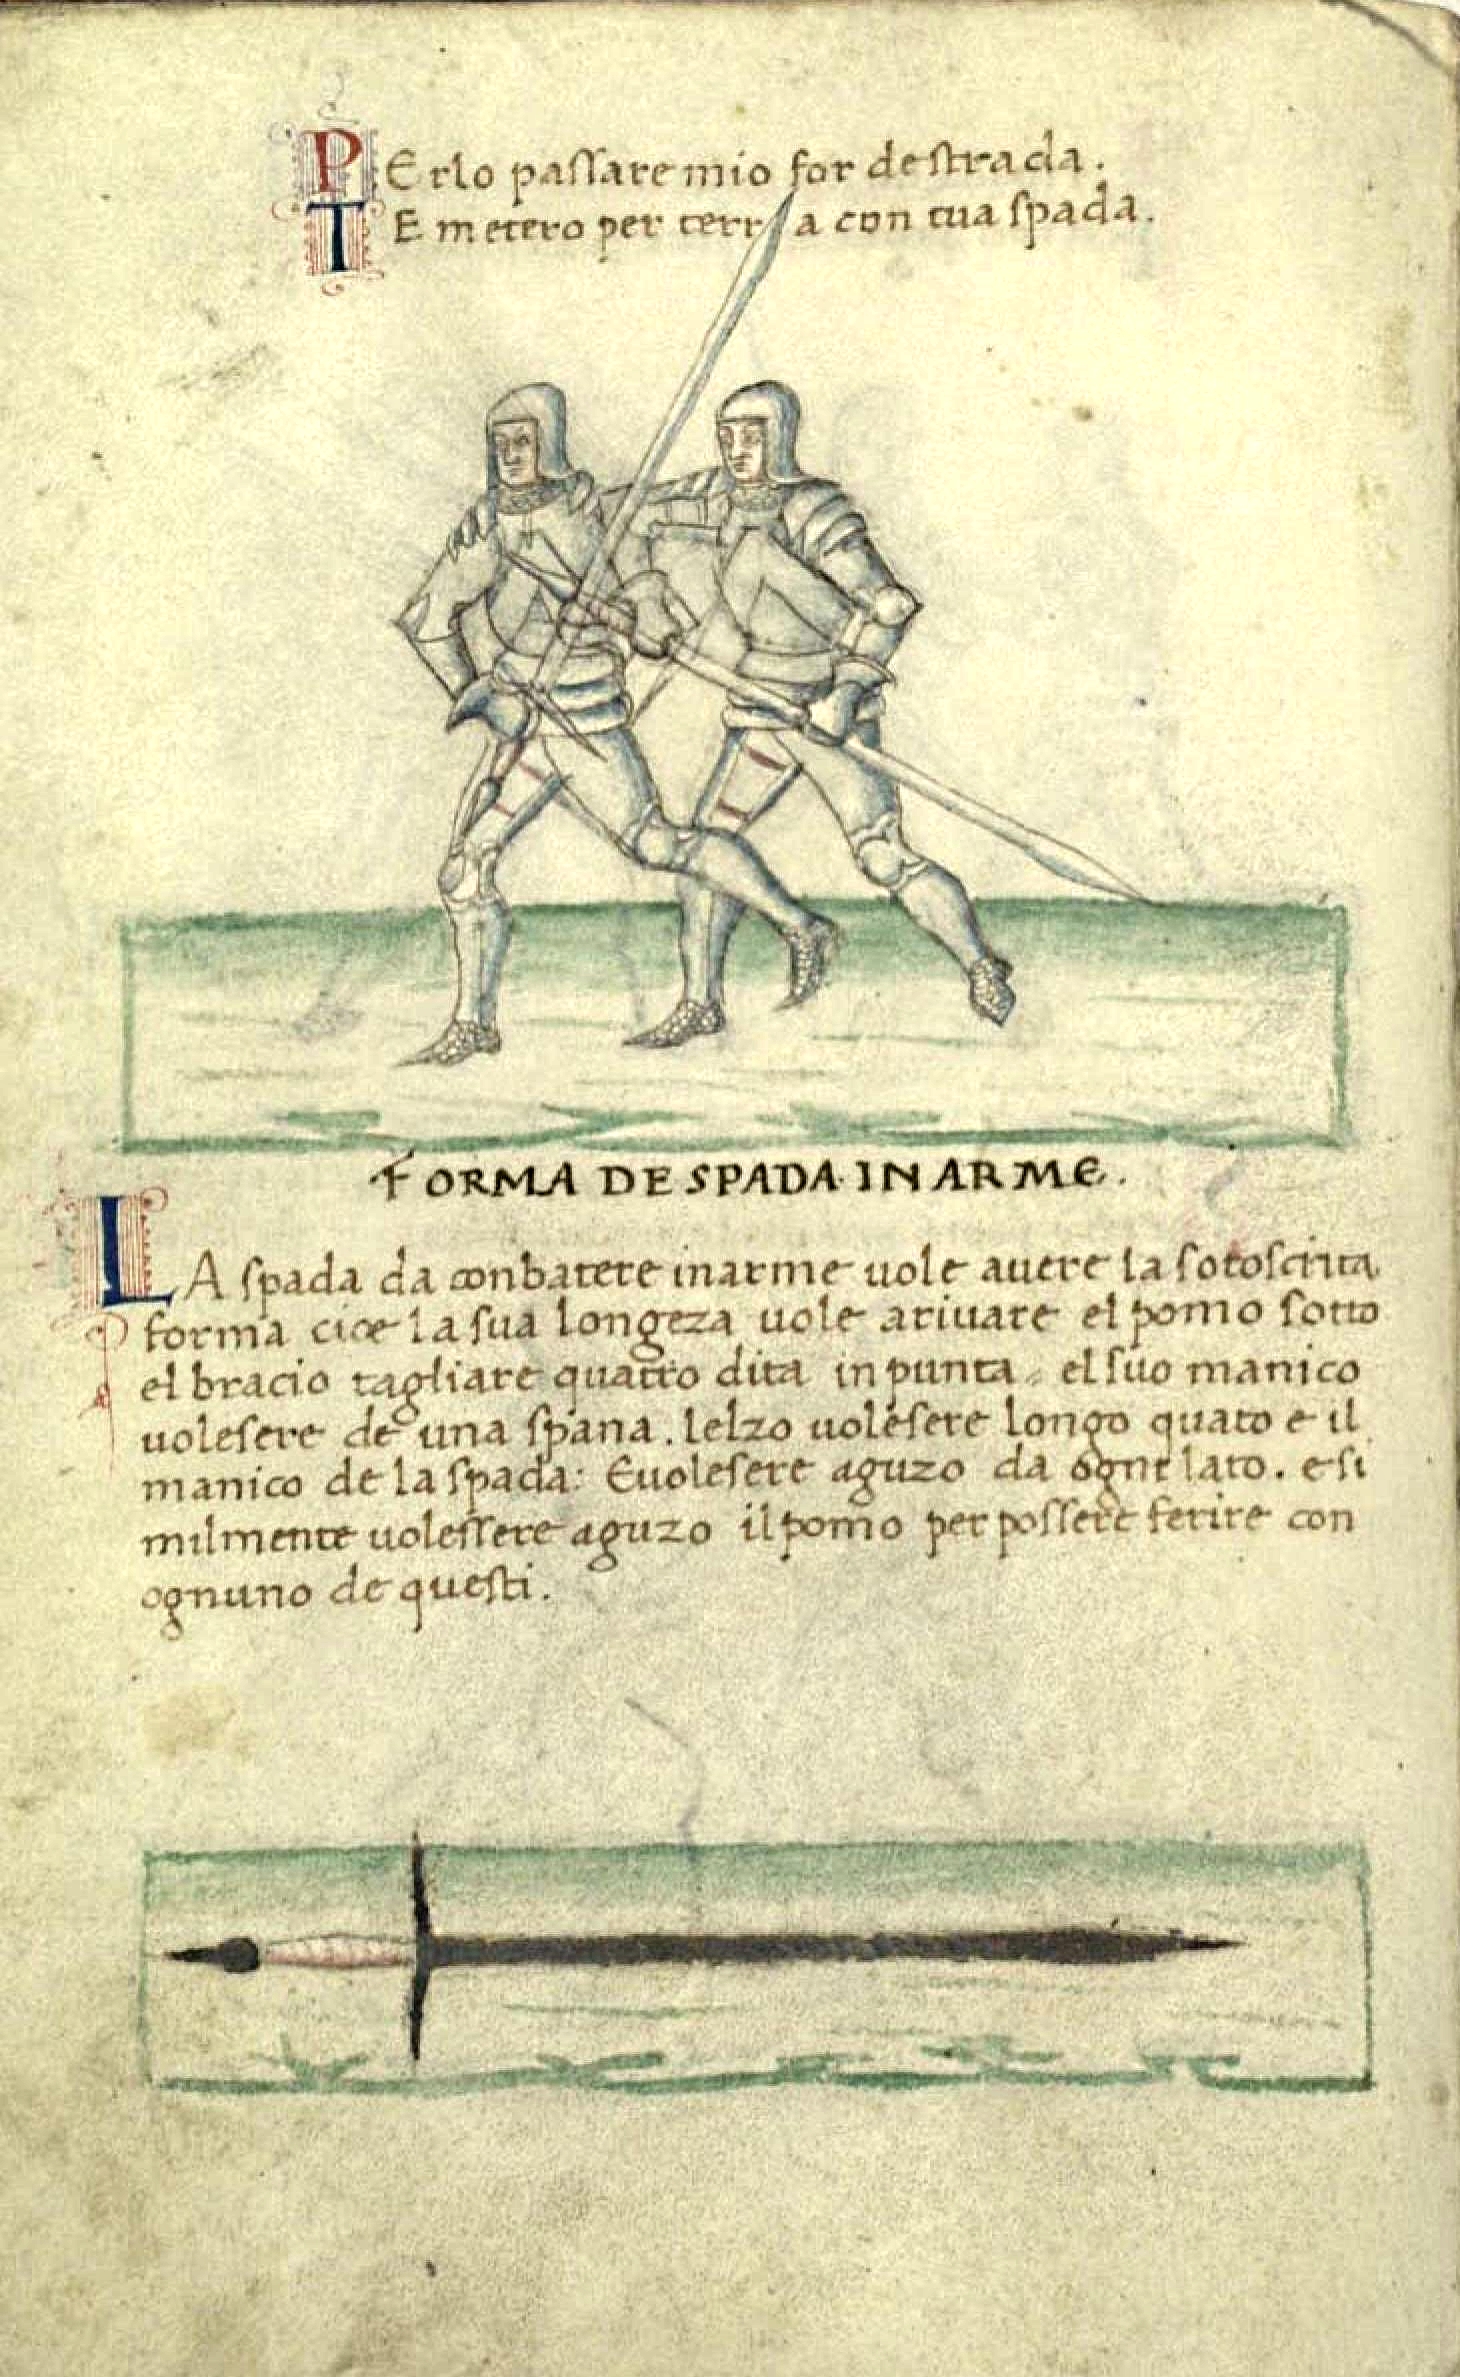 PErlo paſſare mio for de ſtrada.
TE metero per terra con tua ſpada.
FORMA DE SPADA IN ARME.
LA ſpada da conbatere inarme uole auere la ſotoſcrita
forma cioe la ſua longeza uole ariuare el pomo ſotto
el bracio tagliare quatro dita in punta. el ſuo manico
uoleſere de una ſpana. lelzo uoleſere longo quato e il
manico de la ſpada: Euoleſere aguzo da ogne lato. e ſi
milmente uoleſſere aguzo il pomo per poſſere ferire con
ognuno de queſti.